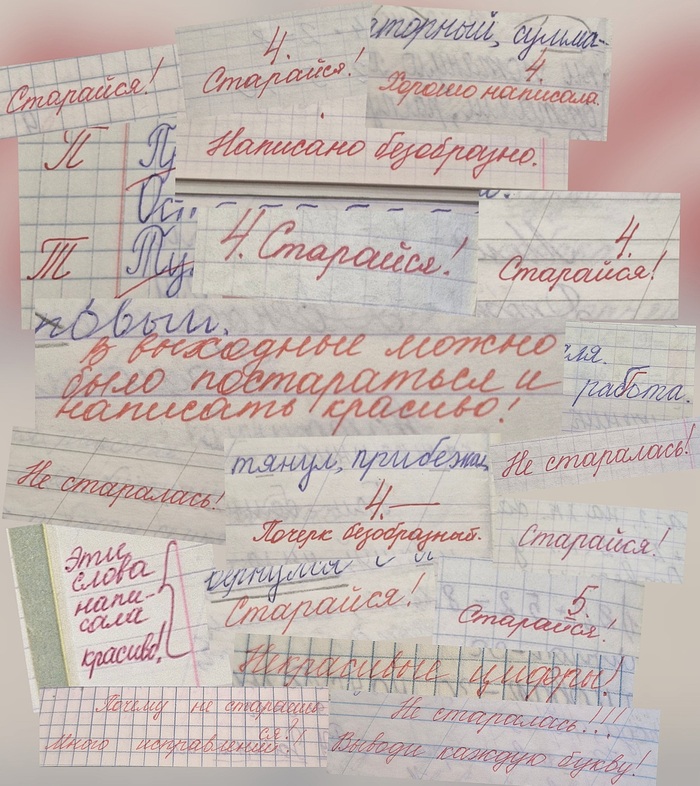 Старайся!
4.
Старайся!
торный, сумма-
4.
Хорошо написала.
Написано безобразно.
П
Т
Ту
4. Старайся!
4.
Старайся!
новый.
В выходные можно
было постараться и
написать красиво!
работа.
Не старалась!
тянул, прибежал
4.—
Почерк безобразный.
Не старалась!
Старайся!
Эти
слова
напи-
сала
красиво!
вернулся
Старайся!
5.
Старайся!
Некрасивые цифры!
Почему не стараешь-
ся?!
Много исправлений
Не старалась!!!
Выводи каждую букву!